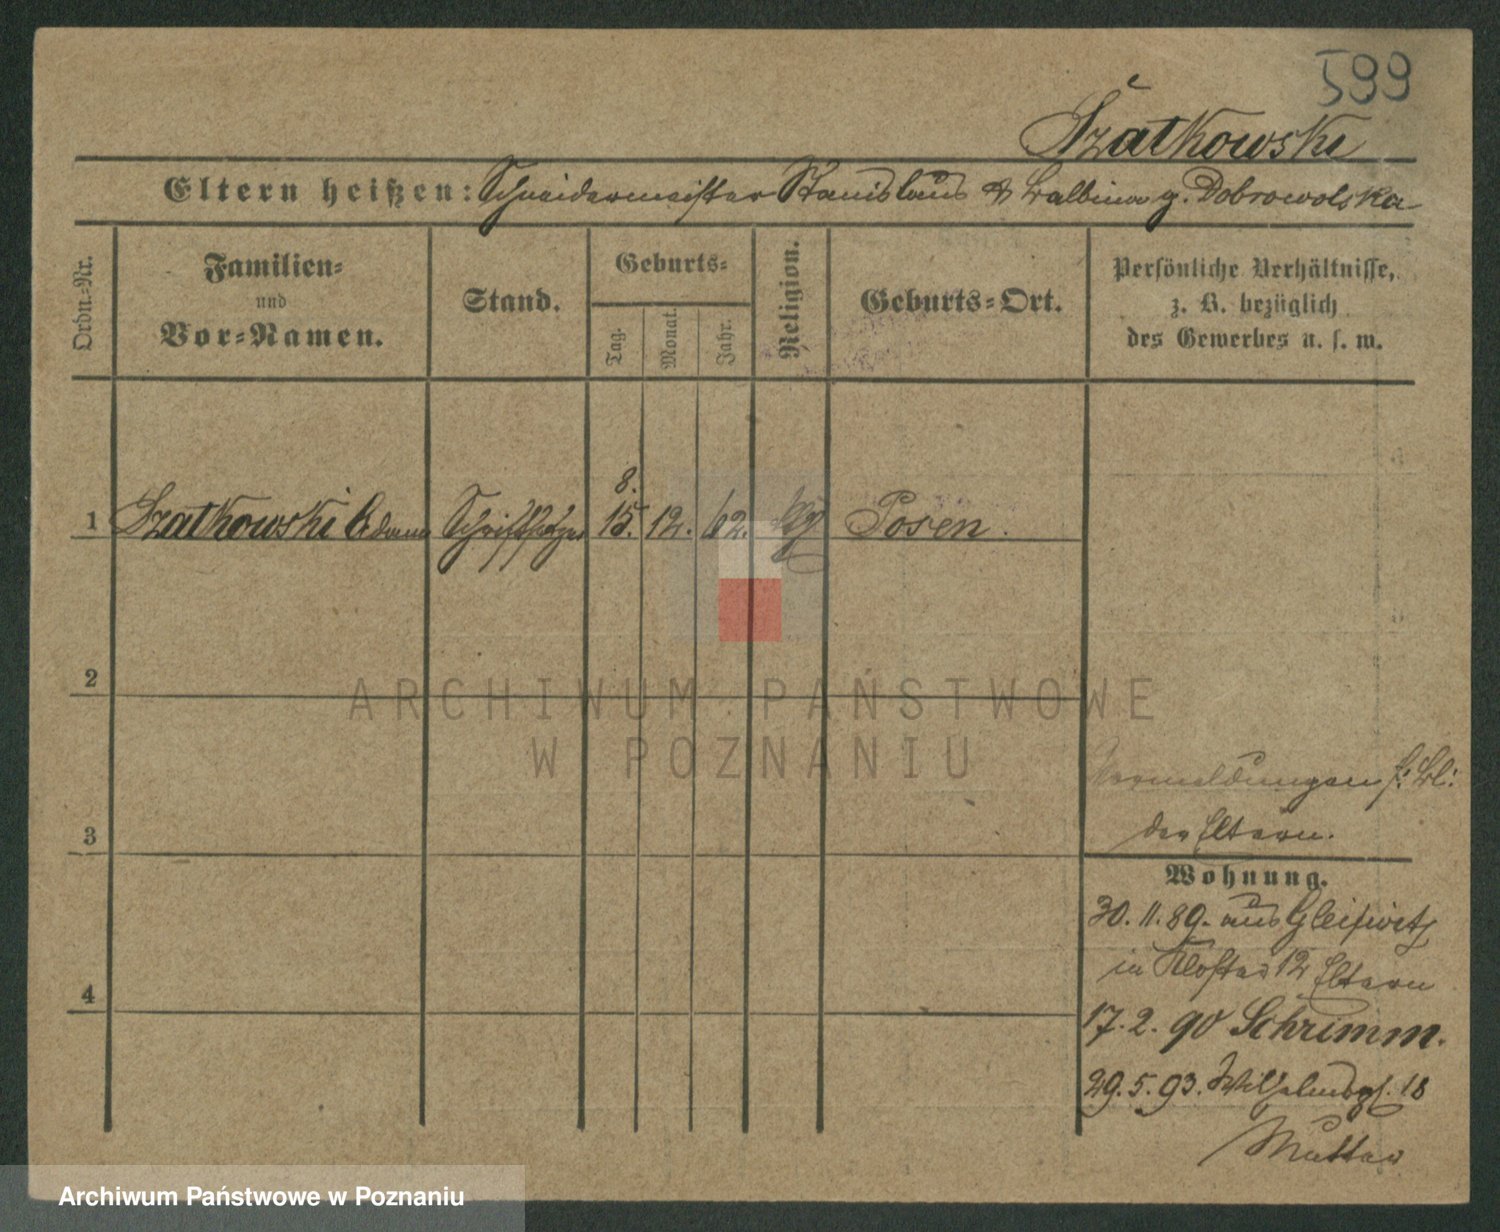 599
Szatkowski
Eltern heißen: Schneidermeister Stanislaus & Balbina g. Dobrowolska
Ordn.-Nr.
Familien-
und
Vor-Namen.
Stand.
Geburts-
Tag.
Monat.
Jahr.
Religion.
Geburts-Ort.
Persönliche Verhältnisse,
z. B. bezüglich
des Gewerbes u. s. w.
8.
1 Szatkowski Adam Schriftsetzer 15. 12. 62. Posen.
2
ARCHIWUM PAŃSTWOWE
W POZNANIU
3
4
Anmeldungen
der Eltern.
Wohnung.
30. 11. 89. aus Gleiwitz
in Kloster 12 Eltern
17. 2. 90 Schrimm.
29. 5. 93. Wilhelmspl. 18
Mutter
Archiwum Państwowe w Poznaniu